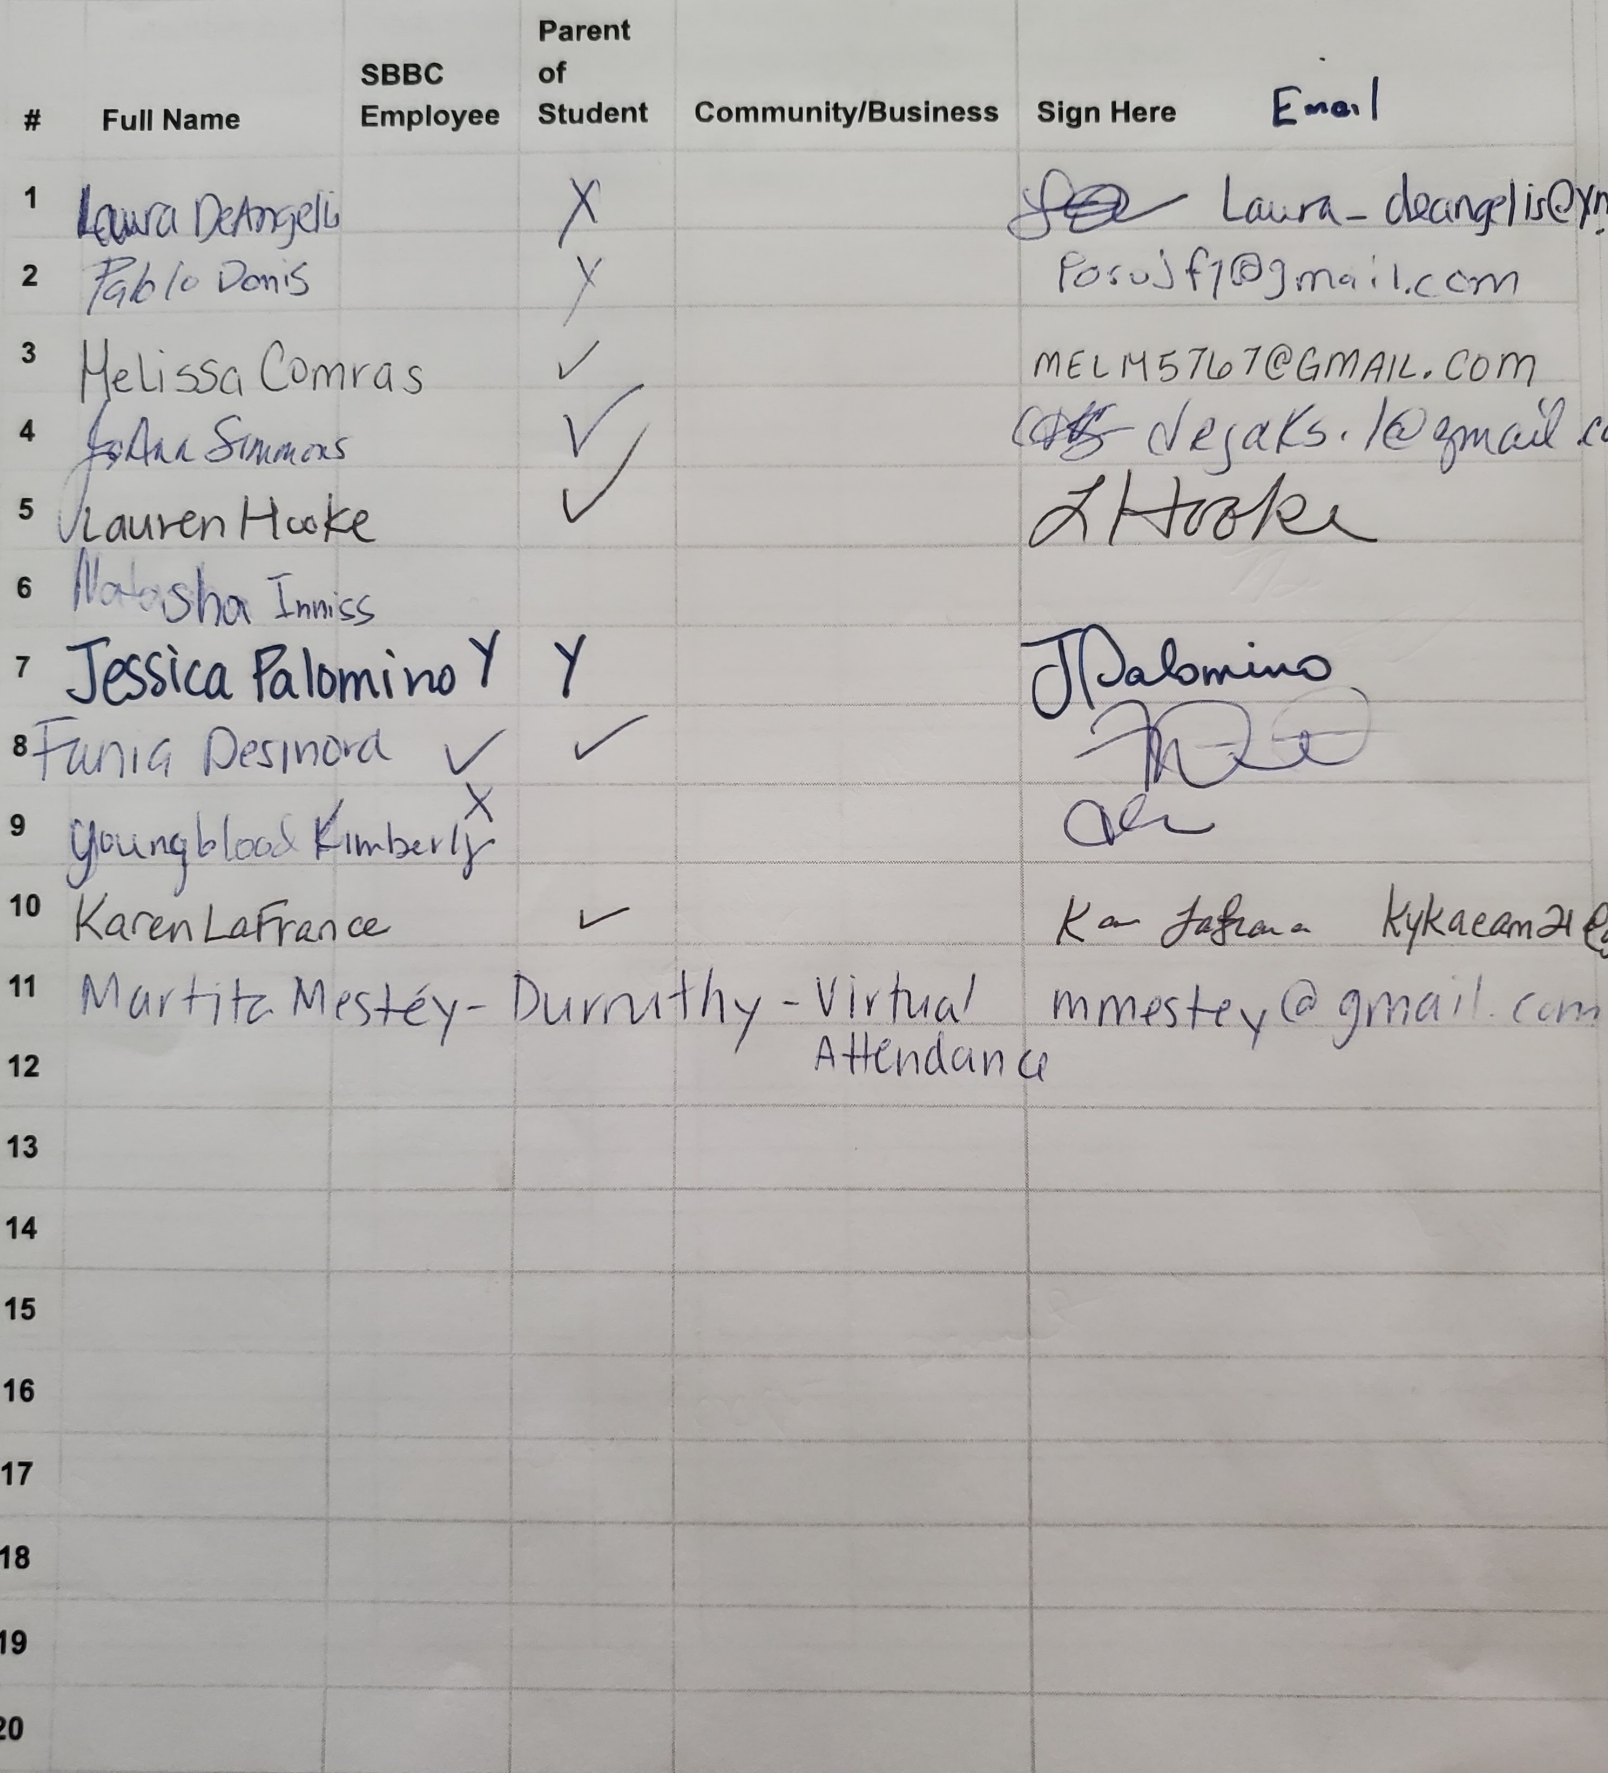 # Full Name SBBC Employee Parent of Student Community/Business Sign Here Email
1 Laura DeAngelis X Laura_deangelis@
2 Pablo Donis X @gmail.com
3 Melissa Comras ✓ MELM5767@GMAIL.COM
4 JoAnn Simmons ✓ dejaks.1@gmail.c
5 Lauren Hooke ✓ L Hooke
6 Natasha Inniss
7 Jessica Palomino Y Y JPalomino
8 Fania Desinord ✓ ✓
9 Youngblood Kimberly X
10 Karen LaFrance ✓
11 Martita Mestéy-Durruthy - Virtual mmestey@gmail.com
12 Attendance
13
14
15
16
17
18
19
20